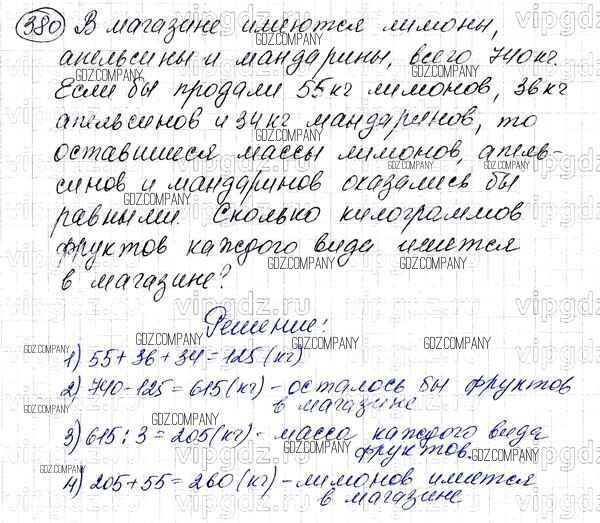 380 В магазине имеются лимоны,
апельсины и мандарины, всего 740 кг.
Если бы продали 55 кг лимонов, 36 кг
апельсинов и 34 кг мандаринов, то
оставшиеся массы лимонов, апель-
синов и мандаринов оказались бы
равными. Сколько килограммов
фруктов каждого вида имеется
в магазине?
Решение:
1) 55 + 36 + 34 = 125 (кг)
2) 740 - 125 = 615 (кг) - осталось бы фруктов
в магазине
3) 615 : 3 = 205 (кг) - масса каждого вида
фруктов.
4) 205 + 55 = 260 (кг) - лимонов имеется
в магазине